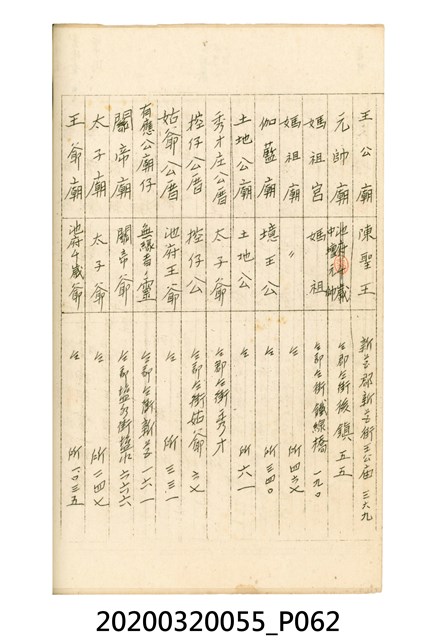 王公廟 陳聖王 新营郡新营街王公庙 三六九
元帥廟 池府千歲 中壇元帥 仝郡仝街後鎮 五五
媽祖宮 媽祖 仝郡仝街鐵線橋 一九〇
媽祖廟 〃 仝 所 四六七
伽藍廟 境王公 仝 所 三四〇
土地公廟 土地公 仝 所 六一
秀才庄公厝 太子爺 仝郡仝街秀才
控仔公厝 控仔公
姑爺公厝 池府王爺 仝郡仝街姑爺 六七
有應公廟仔 無緣者ノ靈 仝 所 三三一
關帝廟 關帝爺 仝郡仝街新营 一六一
太子廟 太子爺 仝郡塩水街塩水 六六六
王爺廟 池府千歲爺 仝 所 二四七
仝 所 一〇三五
20200320055_P062